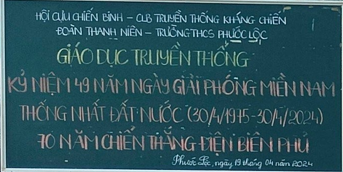 HỘI CỰU CHIẾN BINH - CLB TRUYỀN THỐNG KHÁNG CHIẾN
ĐOÀN THANH NIÊN - TRƯỜNG THCS PHƯỚC LỘC
GIÁO DỤC TRUYỀN THỐNG
KỶ NIỆM 49 NĂM NGÀY GIẢI PHÓNG MIỀN NAM
THỐNG NHẤT ĐẤT NƯỚC (30/4/1975-30/4/2024)
70 NĂM CHIẾN THẮNG ĐIỆN BIÊN PHỦ
Phước Lộc, ngày 19 tháng 04 năm 2024